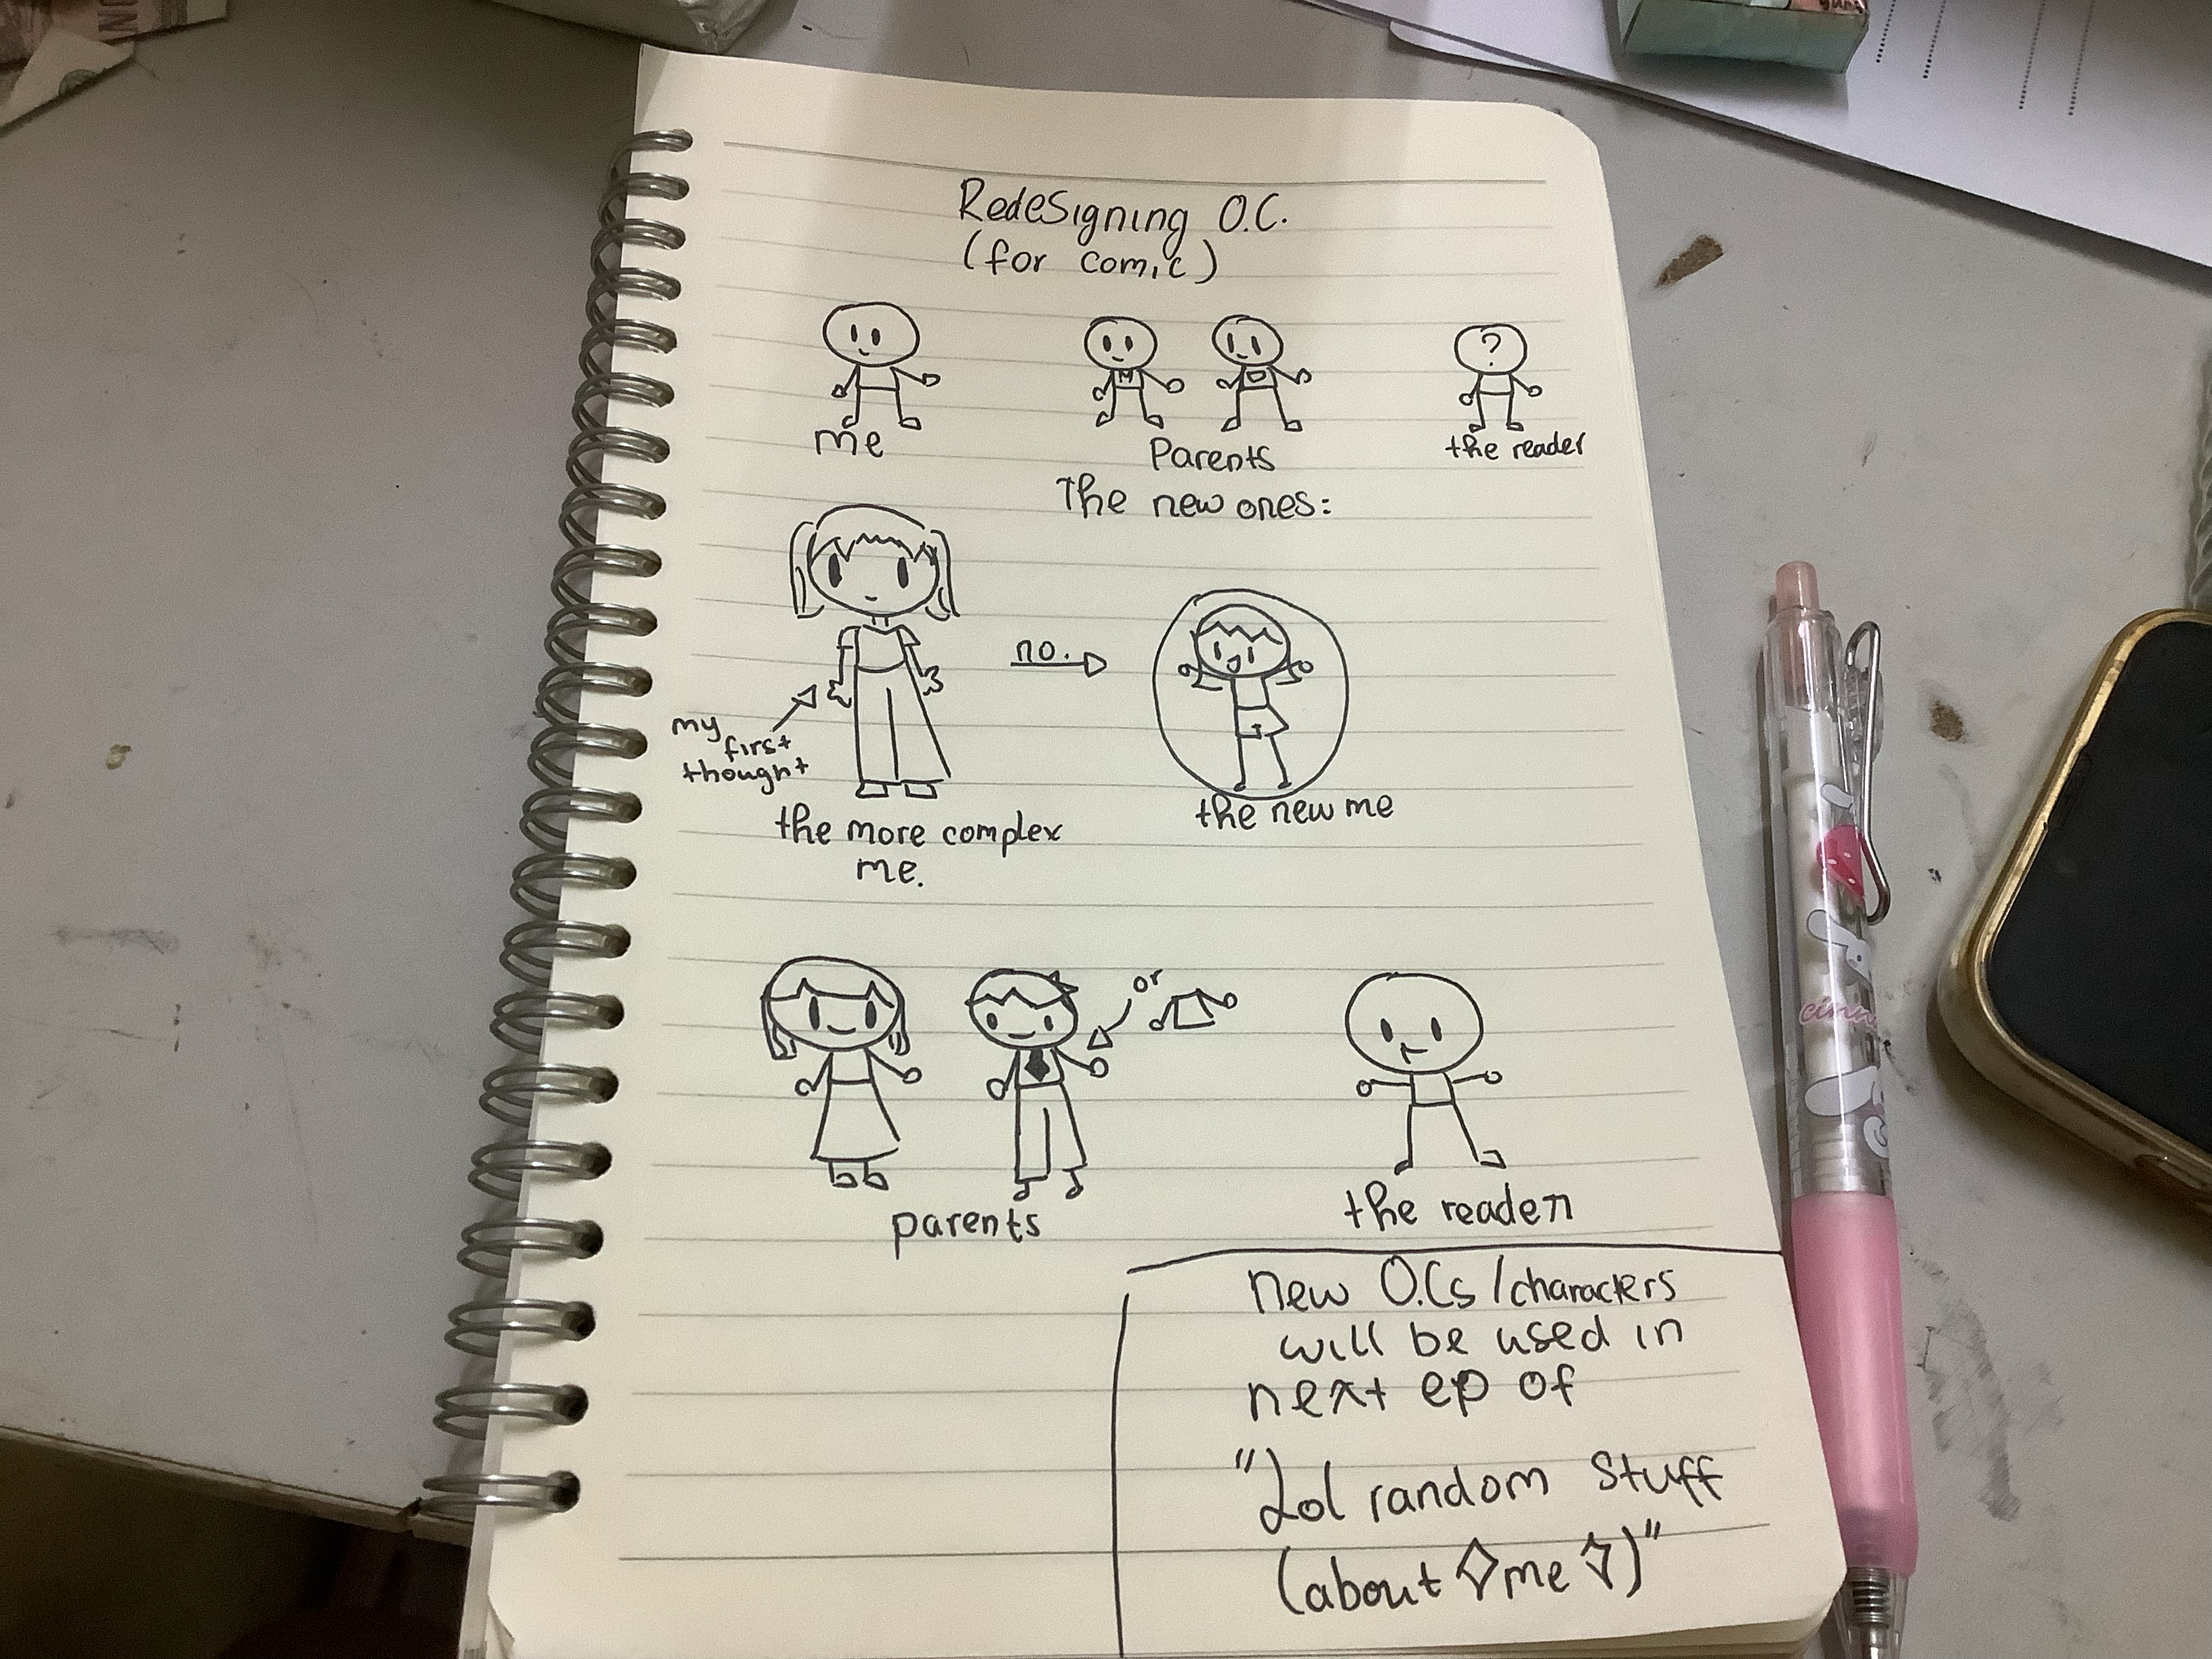 Redesigning O.C.
(for comic)
?
M
D
me
Parents
the reader
The new ones:
no.
my
first
thought
the more complex
me.
the new me
or
parents
the reader
new O.Cs/characters
will be used in
next ep of
"Lol random stuff
(about ◇me◇)"
cinn